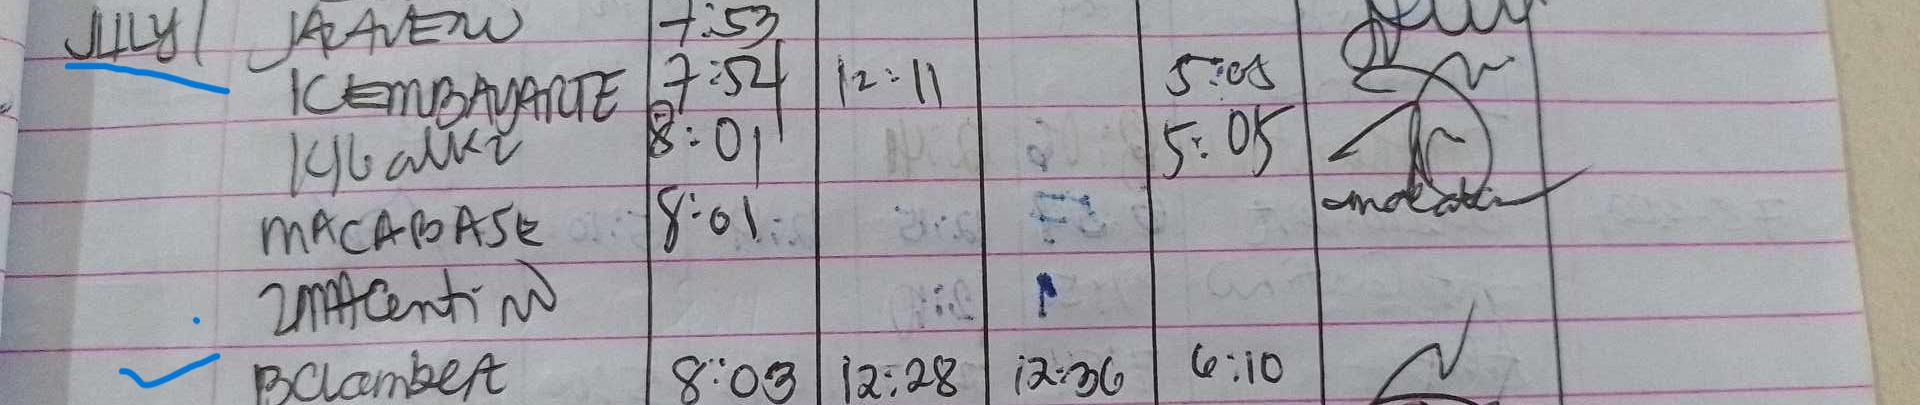 JULY 1 JAAVENU 7:53
KEMBAYARTE 7:54 12:11 5:05
8:01 5:05
MACABASE 8:01
ZMACentiNO
BClambert 8:03 12:28 12:36 6:10